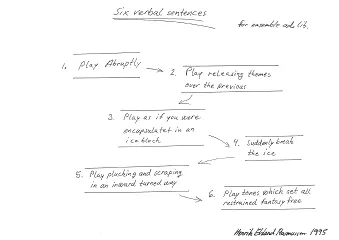 Six verbal sentences
for ensemble ad. lib.
1. Play Abruptly
2. Play releasing themes
over the previous
3. Play as if you were
encapsulatet in an
ice block
4. Suddenly break
the ice
5. Play plucking and scraping
in an inward turned way
6. Play tones which set all
restrained fantasy free
Henrik Rasmussen 1995